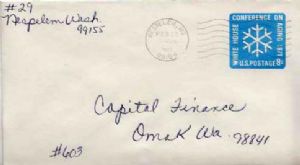 #29
Nespelem Wash.
99155
WHITE HOUSE CONFERENCE ON AGING 1971
U.S. POSTAGE 8¢
Capital Finance
Omak Wa. 98841
#603